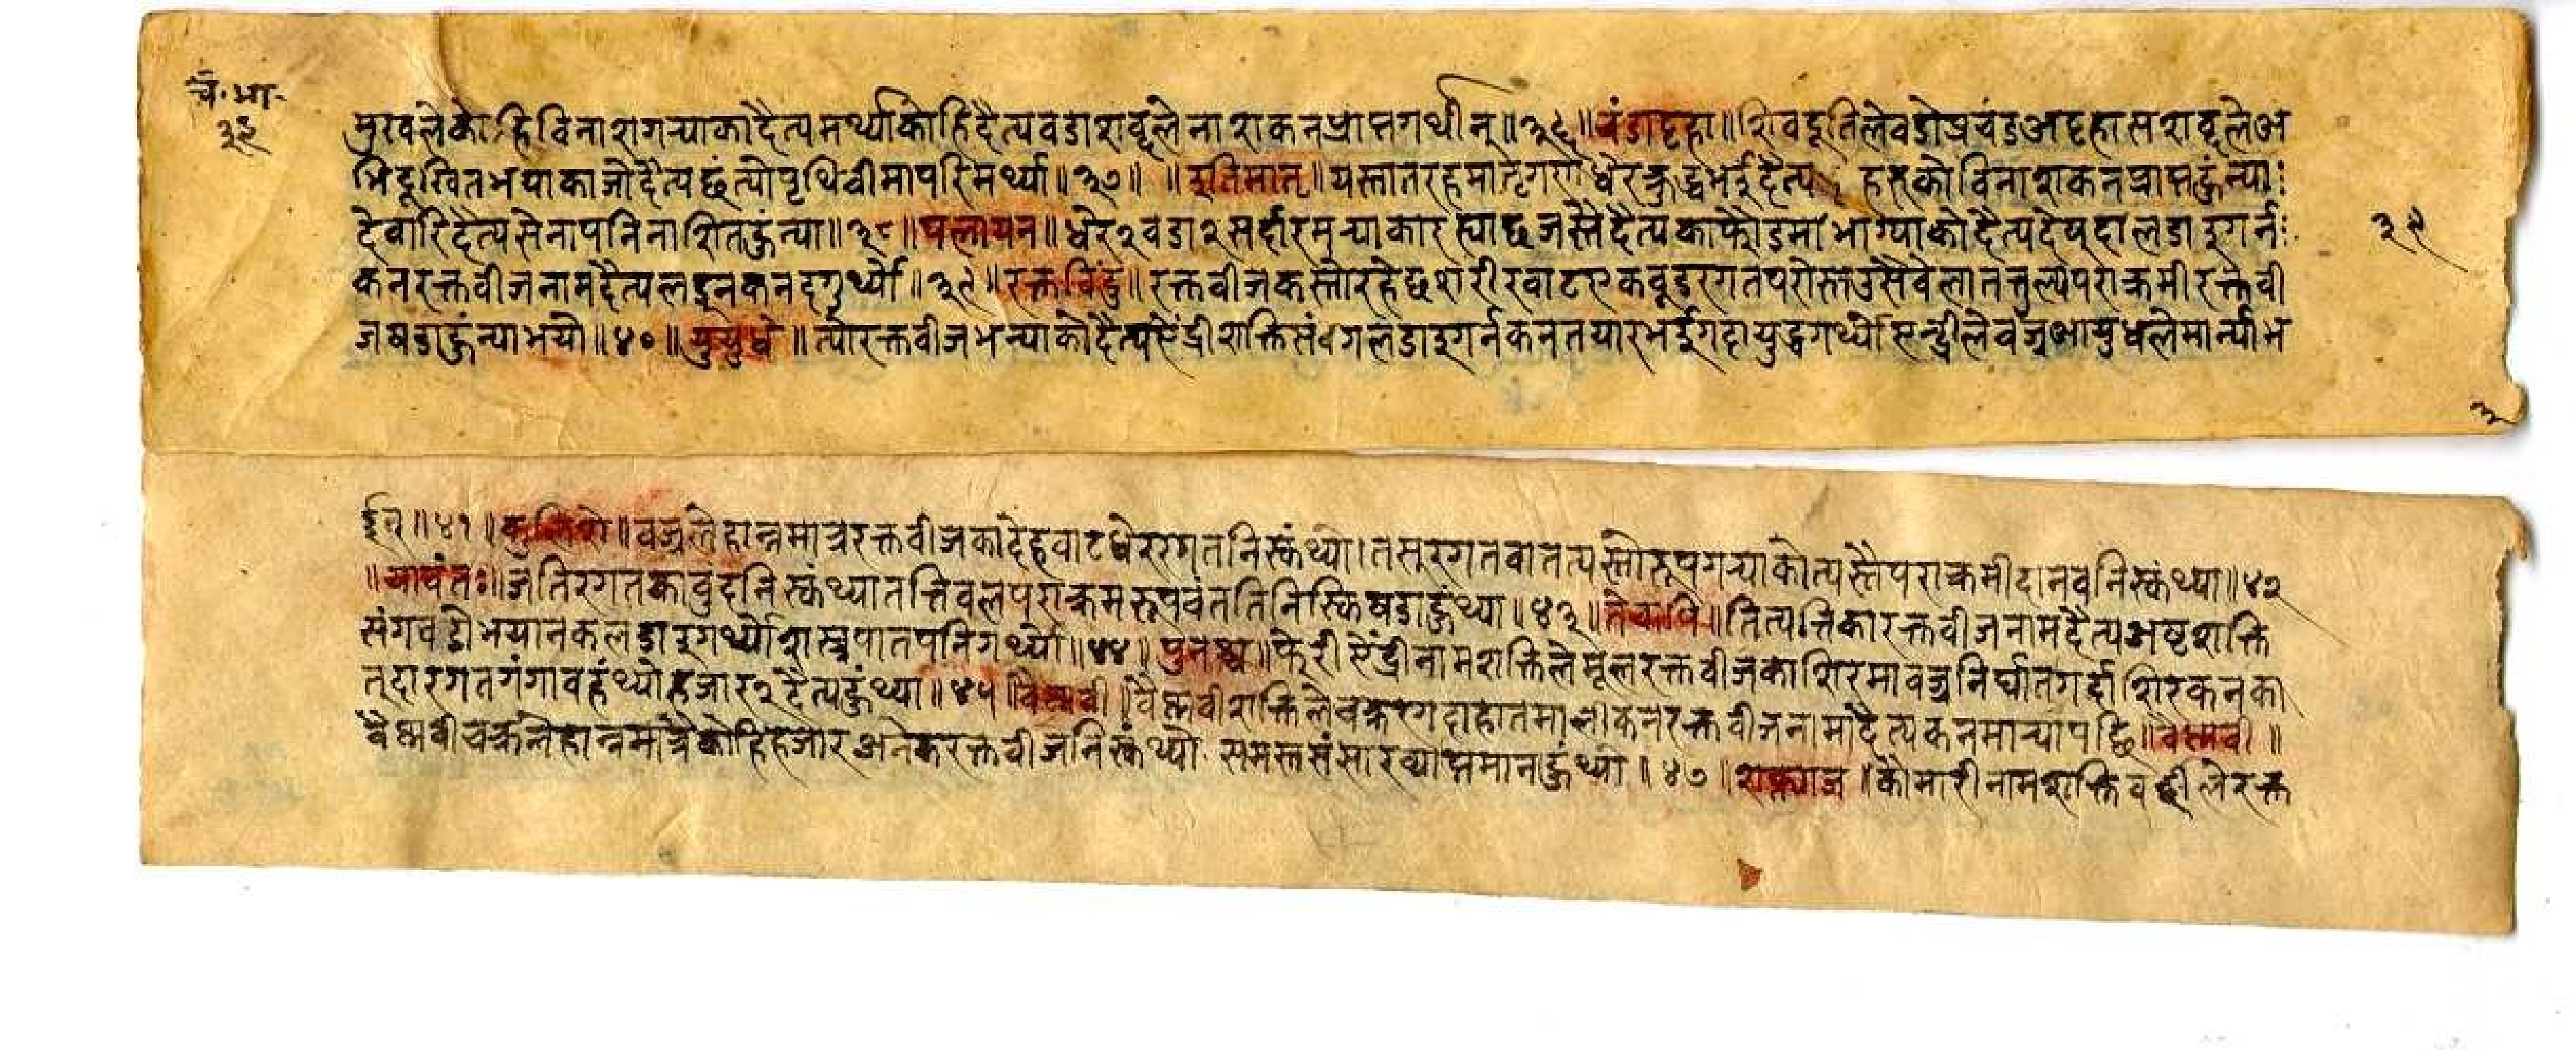 चं.भा.
३३
मुखलेकोहिविनाशगर्‍याकादैत्यमर्थ्याकोहिदैत्यवडाशब्दलेनाशकनप्राप्तगर्थीन्॥३६॥चंडाट्टहा॥शिवदूतिलेवडोप्रचंडअट्टहासशब्दलेअ
भिदूखितभयाकाजोदैत्यछंत्योपृथिवीमापरिमर्थ्या॥३७॥ ॥इतिमातृ॥यस्तातरहमातृगणधैरक्रुद्धभईदैत्य हरुकोविनाशकनप्राप्तहुंन्या
देवारिदैत्यसेनापनिनाशितहुंन्या॥३८॥पलायन॥धेर२वडा२सर्दारमर्‍याकारह्याछजस्लैदैत्यकाफौडमाभाग्याकोदैत्यदेषदालडाइगर्न
कनरक्तवीजनामदैत्यलड्नकनदगुर्थ्यो॥३९॥रक्तविंदु॥रक्तवीजकस्तोरहेछशरीरवाटएकवूडरगतपरोस्तउसैवेलातत्तुल्यपराक्रमीरक्तवी
जषडाहुंन्याभयो॥४०॥युयुधे॥त्योरक्तवीजभन्याकोदैत्यसेंद्रीशक्तिसंगलडाइगर्नकनतयारभईगदायुद्धगर्थ्योसेन्द्रीलेवज्रआयुधलेमार्न्याभ
३९
ईन्॥४१॥कुलिशे॥वज्रलेहान्नमात्ररक्तवीजकादेहवाटधैररगतनिस्कंथ्यो।तसरगतवातत्यस्तोरूपगर्‍याकोत्यस्तैपराक्रमीदानवनिस्कंथ्या॥४२
॥यावंतः॥जतिरगतकावुंदनिस्कंथ्यातत्तिवलपराक्रमरूपवंततिनिस्किषडाहुंथ्या॥४३॥तेचापि॥तित्यत्तिकारक्तवीजनामदैत्यअष्टशक्ति
संगवडोभयानकलडाइगर्थ्योशस्त्रपातपनिगर्थ्यो॥४४॥पुनश्च॥फेरीसेंद्रीनामशक्तिलेमूलरक्तवीजकाशिरमावज्रनिर्घातगर्दाशिरकनका
तदारगतगंगावहंथ्योहजार२दैत्यहुंथ्या॥४५॥वैष्णवी॥वैष्णवीशक्तिलेचक्ररगदाहातमालीकनरक्तवीजनामादैत्यकनमार्‍यापछि॥वैष्णवी॥
वैष्णवीचक्रलेहान्नमात्रैकोहिहजारअनेकरक्तवीजनिस्कंथ्यो समस्तसंसारव्याप्तमानहुंथ्यो॥४७॥शक्त्याज॥कौमारीनामशक्तिवर्छीलेरक्त